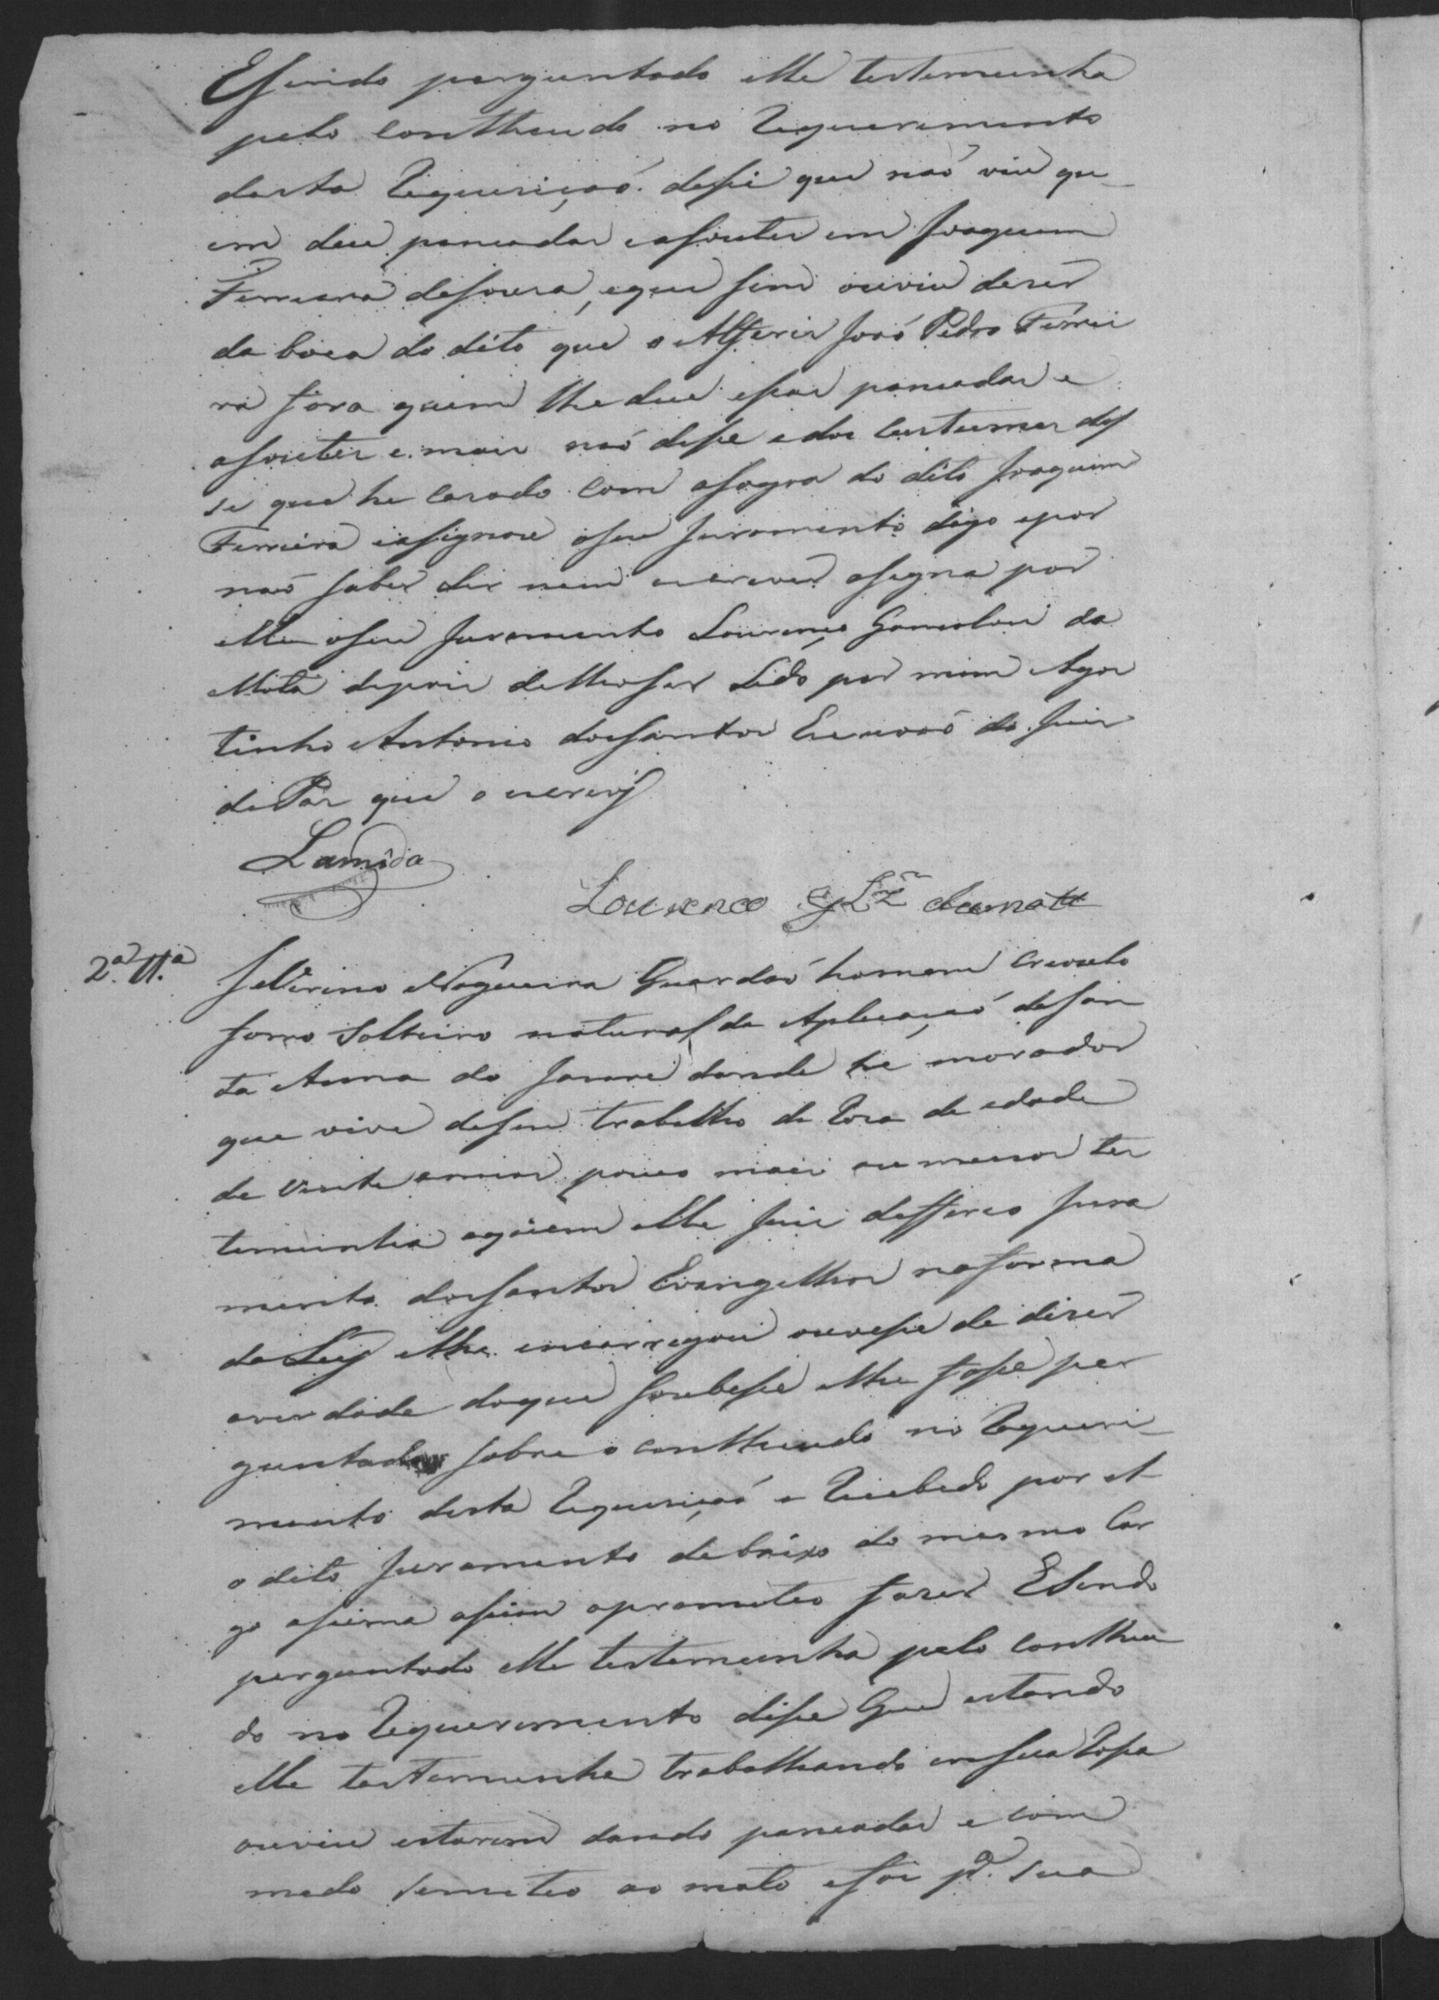 Esendo perguntado elle testemunha
pelo contheudo no Requerimento
desta Requeriçaõ. dise que naõ viu qu-
em deu pancadas e asoutes em Joaquim
Ferreira desousa, eque sim ouviu deser
da boca do dito que o Alferes José Pedro Ferrei
ra fora quem lhe deu esas pancadas e
asoutes e mais naõ dise e dos custumes dis
se que he casado com asogra do dito Joaquim
Ferreira easignou oseu Juramento digo epor
naõ saber ler nem escrever asigna por
elle oseu Juramento Lourenço Gonsalves da
Mota depois delheser Lido por mim Agos
tinho Antonio dosSantos Escrivaõ do Juis
de Pas que o escrevy
Lourenco Glz̃ damota
2.ª Tt.ª
Severino Nogueira Guardaõ homem creoulo
forro Solteiro natural da Aplicaçaõ desan
ta Anna do Jacaré donde he morador
que vive deseu trabalho de Rosa de edade
de vinte annos pouco mais ou menos tes
temunha aquem elle Juis defferio Jura
mento dosSantos Evangelhos naforma
da Ley elhe encarregou ouvese de diser
averdade doque soubese elhe fose per
guntado sobre o contheudo no Requeri-
mento desta Requeriçaõ e Recebido por el-
o dito Juramento debaixo do mesmo Car
go asima asim oprometeo faser Esendo
perguntado elle testemunha pelo contheu
do no Requerimento dise Que estando
elle testemunha trabalhando emsua Rosa
ouviu estarem dando pancadas e com
medo semeteo ao mato efoi p.ª sua